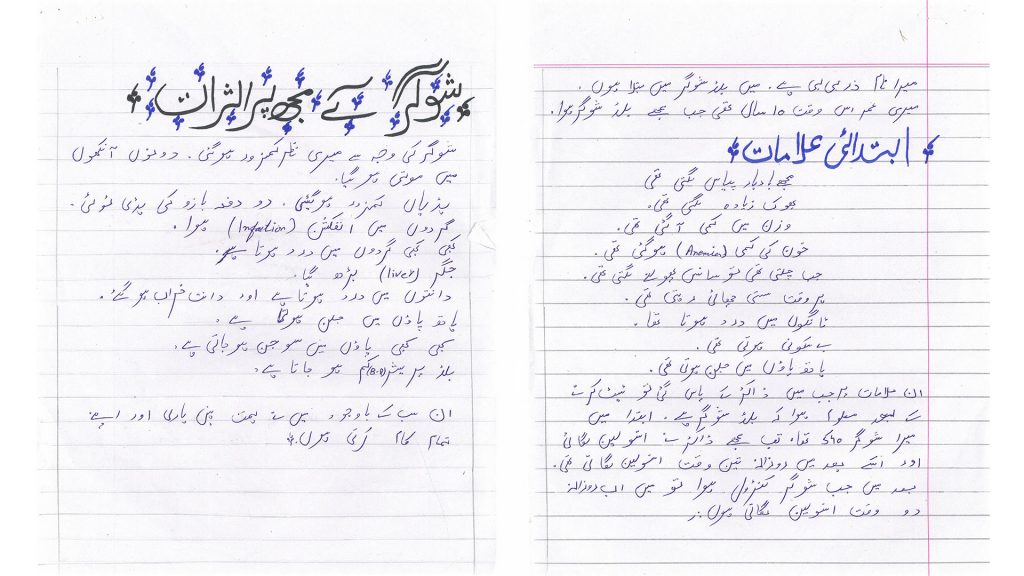 میرا نام ذرمی بی ہے۔ میں بلڈ شوگر میں مبتلا ہوں۔
میری عمر اس وقت 15 سال تھی جب مجھے بلڈ شوگر ہوا۔
ابتدائی علامات
مجھے بار بار پیاس لگتی تھی
بھوک زیادہ لگتی تھی۔
وزن میں کمی آ گئی تھی۔
خون کی کمی (Anemia) ہوگئی تھی۔
جب چلتی تھی تو سانس پھولنے لگتی تھی۔
ہر وقت سستی چھائی رہتی تھی۔
ٹانگوں میں درد ہوتا تھا۔
بے سکونی ہوتی تھی۔
ہاتھ پاؤں میں جلن ہوتی تھی۔
ان علامات پر جب میں ڈاکٹر کے پاس گئی تو ٹیسٹ کرنے
کے بعد معلوم ہوا کہ بلڈ شوگر ہے۔ ابتدا میں
میرا شوگر 540 تھا۔ تب مجھے ڈاکٹر نے انسولین لگائی
اور اسکے بعد میں روزانہ تین وقت انسولین لگاتی تھی۔
بعد میں جب شوگر کنٹرول ہوا تو میں اب روزانہ
دو وقت انسولین لگاتی ہوں۔
شوگر کے مجھ پر اثرات
شوگر کی وجہ سے میری نظر کمزور ہوگئی۔ دونوں آنکھوں
میں موتی ہو گیا۔
ہڈیاں کمزور ہوگئیں۔ دو دفعہ بازو کی ہڈی ٹوٹی۔
گردوں میں انفکشن (Infection) ہوا۔
کبھی کبھی گردوں میں درد ہوتا ہے۔
جگر (liver) بڑھ گیا۔
دانتوں میں درد ہوتا ہے اور دانت خراب ہو گئے۔
ہاتھ پاؤں میں جلن ہوتا ہے۔
کبھی کبھی پاؤں میں سوجن ہو جاتی ہے۔
بلڈ پریشر (B.P) کم ہو جاتا ہے۔
ان سب کے باوجود میں نے ہمت نہیں ہاری اور اپنے
تمام کام کرتی ہوں۔